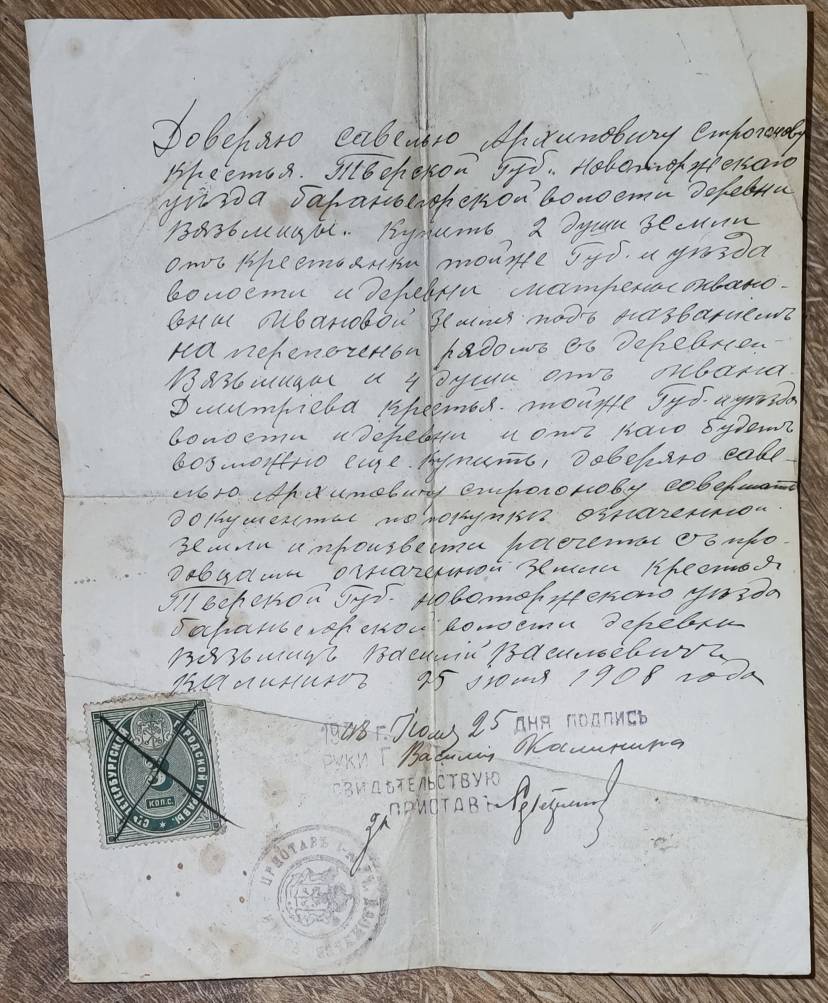 Доверяю савелью Архиповичу строгонову
крестья. Тверской Губ.. новоторжского
уѣзда бараньегорской волости деревни
Вязьмицы. Купить 2 души земли
отъ крестьянки тойже Губ. и уѣзда
волости и деревни матрены ивано-
вны Ивановой земля подъ названіемъ
на перепеченьи рядомъ съ деревней
Вязьмицы и 4 души отъ Ивана
Дмитріева крестья. тойже Губ. и уѣзда
волости и деревни и отъ каго будетъ
возможно еще купить, доверяю саве-
лью Архиповичу строгонову совершать
документы по покупкѣ означенной
земли и произвести расчеты съ про-
довцамы означенной земли крестья
Тверской Губ. новоторжского уѣзда
бараньегорской волости деревни
Вязьмицъ Василій Васильевичъ
Калининъ 25 июля 1908 года
1908 г. Июля 25 ДНЯ ПОДПИСЬ
РУКИ Г. Василия Калинина
СВИДѢТЕЛЬСТВУЮ
ПРИСТАВЪ
С. ПЕТЕРБУРГСКОЙ ГОРОДСКОЙ УПРАВЫ.
5
КОП. С.
ПРИСТАВЪ